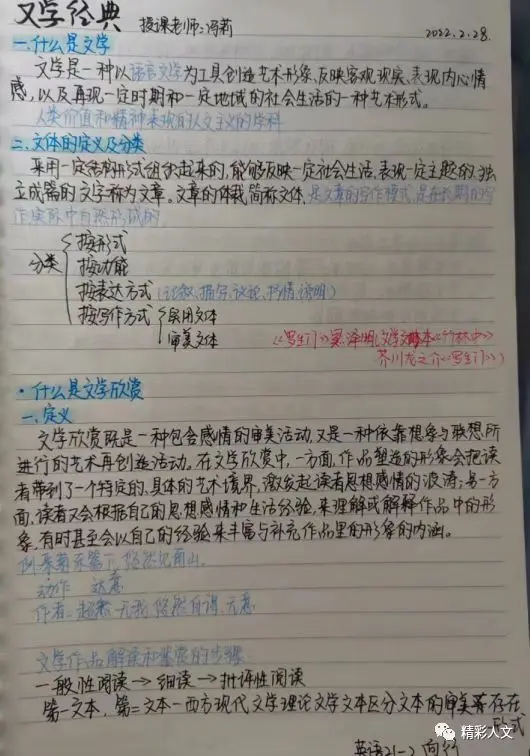 文学经典 授课老师:冯莉 2022.2.28.
一.什么是文学
文学是一种以语言文学为工具创造艺术形象、反映客观现实、表现内心情
感,以及再现一定时期和一定地域的社会生活的一种艺术形式。
人类价值和精神表现的人文主义的学科
二.文体的定义及分类
采用一定结构形式组织起来的,能够反映一定社会生活,表现一定主题的,独
立成篇的文字称为文章。文章的体裁简称文体,是文章的写作模式,是在长期的写
作实际中自然形成的
分类
按形式
按功能
按表达方式(记叙、描写、议论、抒情、说明)
按写作方式 实用文体
审美文体
《罗生门》黑泽明,文学文本《竹林中》
芥川龙之介《罗生门》)
·什么是文学欣赏
一、定义
文学欣赏既是一种包含感情的审美活动,又是一种依靠想象与联想所
进行的艺术再创造活动。在文学欣赏中,一方面,作品塑造的形象会把读
者带到了一个特定的、具体的艺术境界,激发起读者思想感情的波涛;另一方
面,读者又会根据自己的思想感情和生活经验,来理解或解释作品中的形
象,有时甚至会以自己的经验来丰富与补充作品里的形象的内涵。
例:采菊东篱下,悠然见南山。
动作 达意
作者:超然 无我,悠然自得,无意
文学作品解读和鉴赏的步骤
一般性阅读→细读→批评性阅读
第一文本,第二文本—西方现代文学理论文学文本区分文本的审美存在
形式
英语21-2
精彩人文